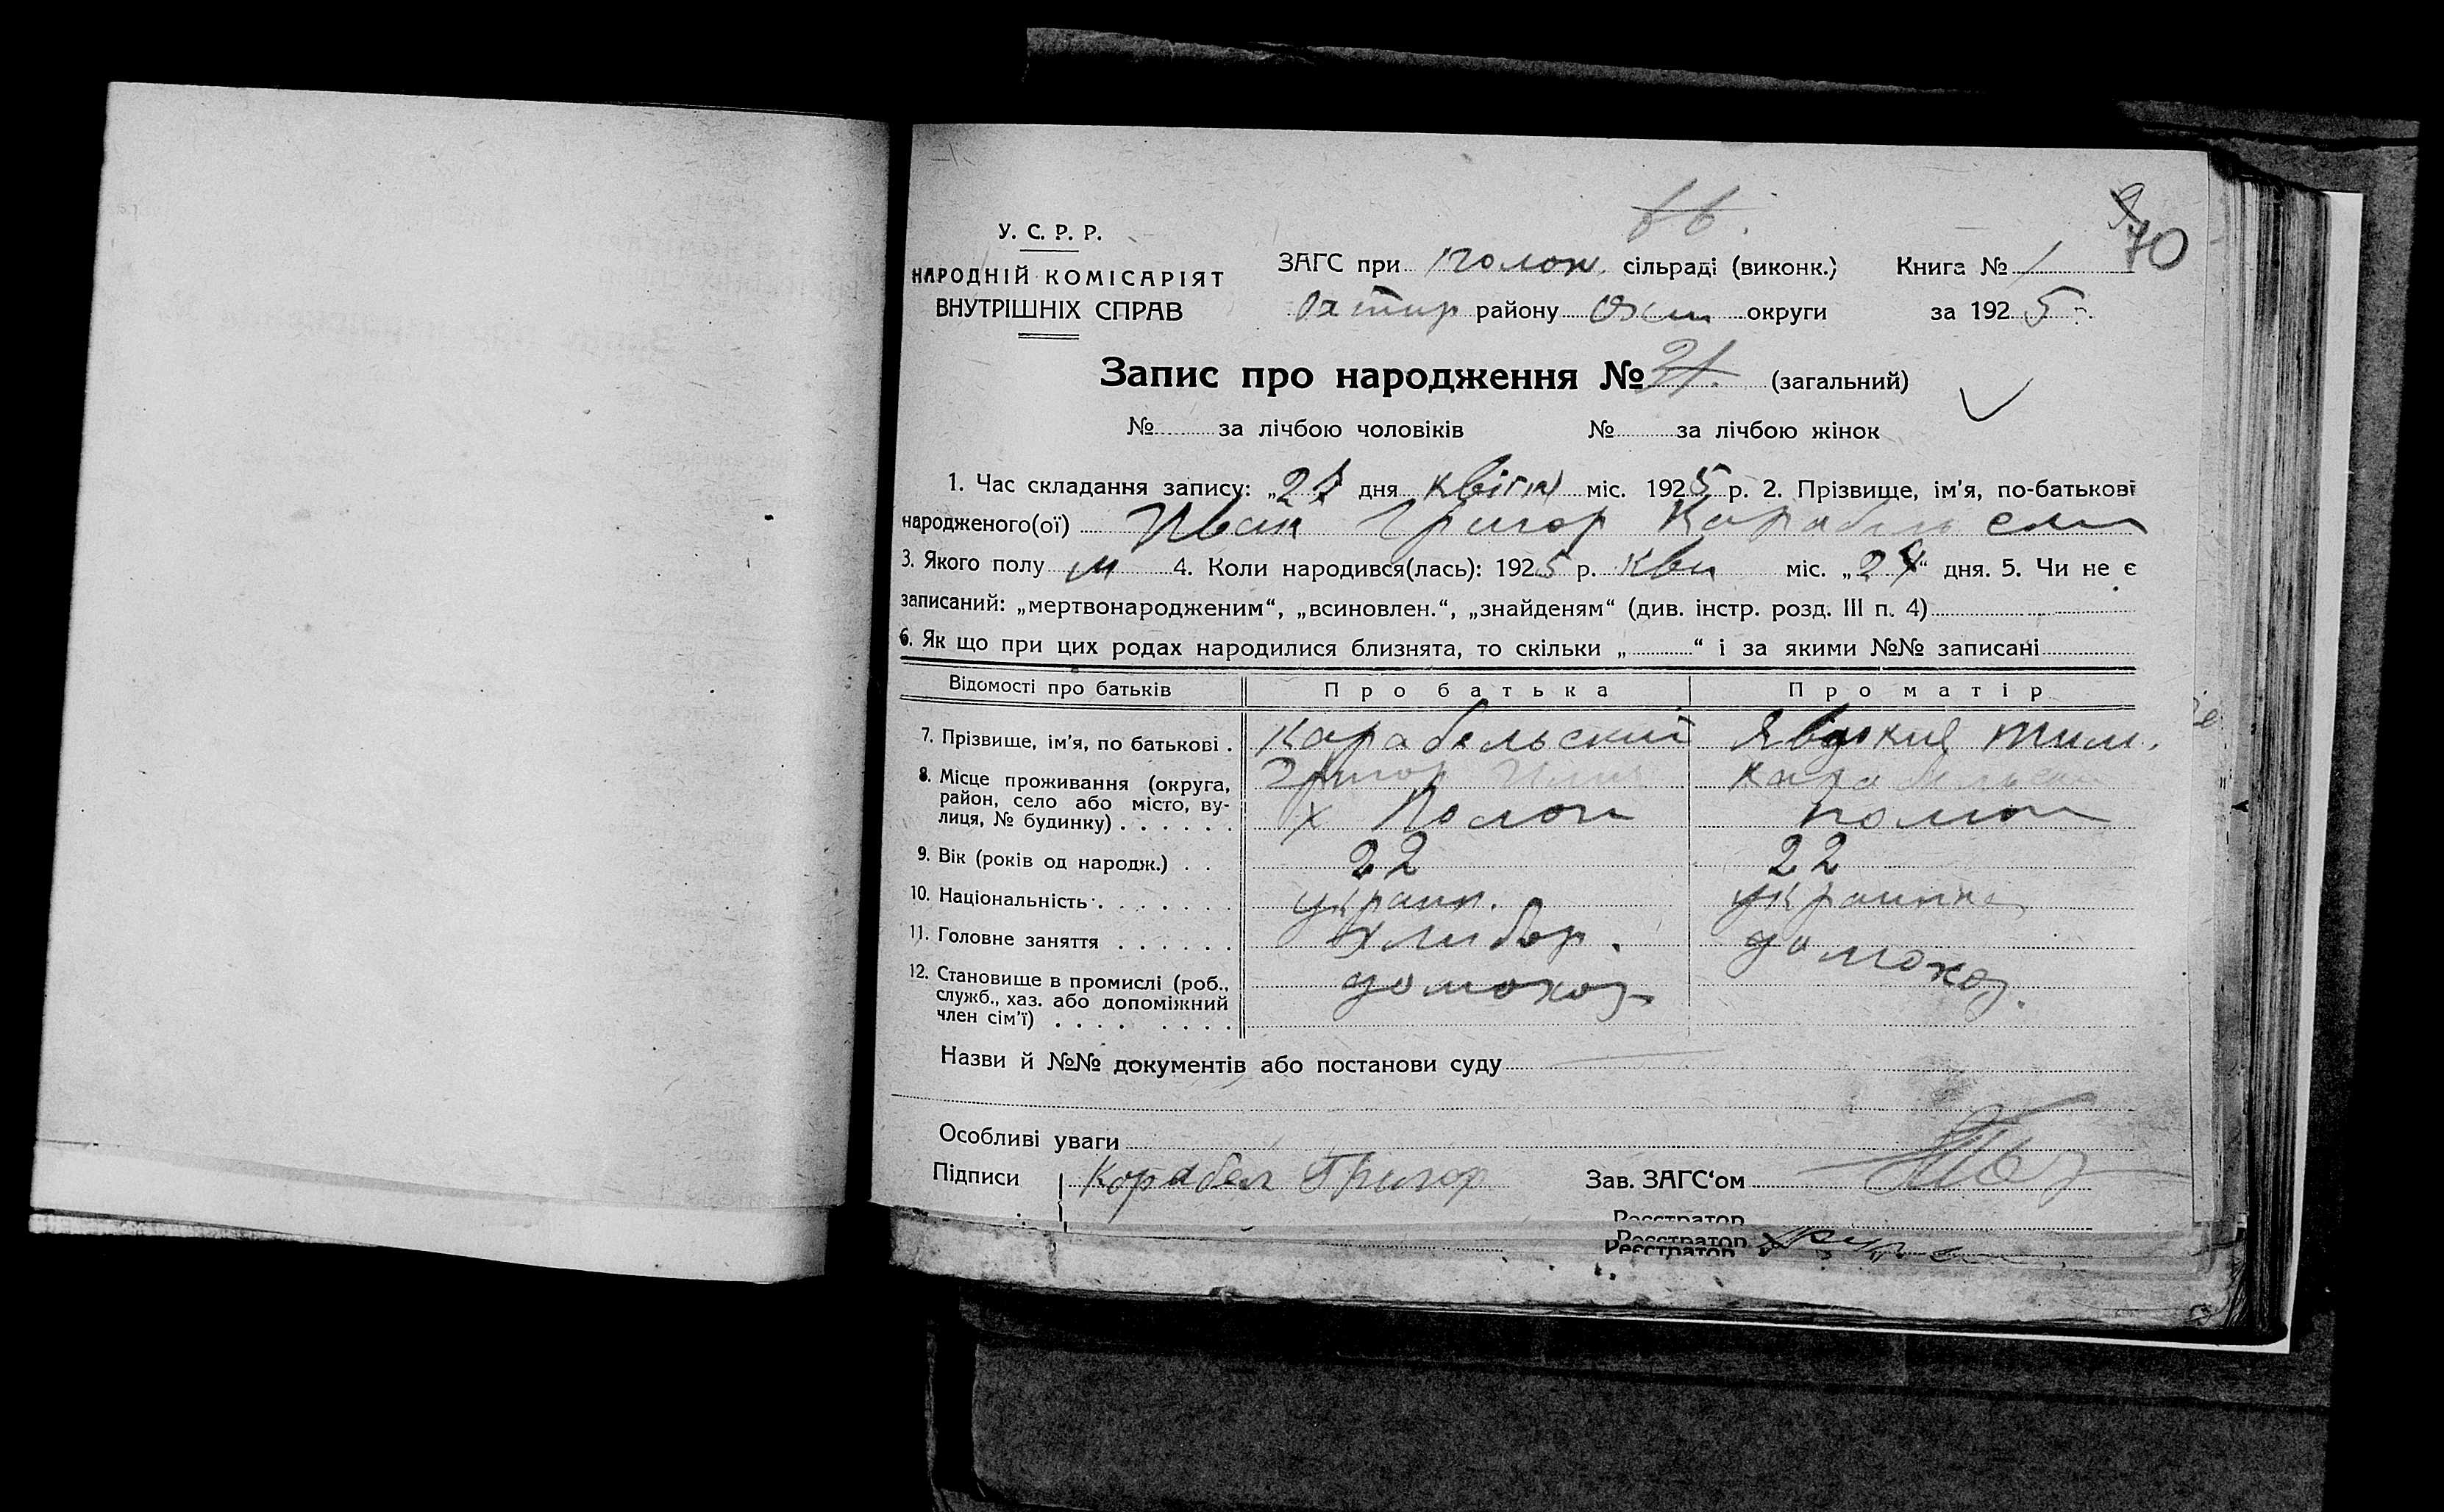 70
У. С. Р. Р.
НАРОДНІЙ КОМІСАРІЯТ
ВНУТРІШНІХ СПРАВ
ЗАГС при полон. сільраді (виконк.) Книга № 1
району округи за 1925
Запис про народження № 31. (загальний)
№ за лічбою чоловіків № за лічбою жінок
1. Час складання запису: „27 дня міс. 1925 р. 2. Прізвище, ім'я, по-батькові
народженого(ої) Иван Григор
3. Якого полу м 4. Коли народився(лась): 1925 р. кви міс. „24“ дня. 5. Чи не є
записаний: „мертвонародженим“, „всиновлен.“, „знайденям“ (див. інстр. розд. III п. 4)
6. Як що при цих родах народилися близнята, то скільки „ “ і за якими №№ записані
Відомості про батьків Про батька Про матір
7. Прізвище, ім'я, по батькові . Карабельский Явдокия Тим.
8. Місце проживання (округа, Григор
район, село або місто, ву- х Полон полон
лиця, № будинку) . . . . . .
9. Вік (років од народж.) . . 22 22
10. Національність . . . . . . . украин. украинка
11. Головне заняття . . . . . . хлибор. домохоз.
12. Становище в промислі (роб., домохоз
служб., хаз. або допоміжний
член сім'ї) . . . . . . . .
Назви й №№ документів або постанови суду
Особливі уваги
Підписи Корабел Григор Зав. ЗАГС‘ом
Реєстратор
Реєстратор
Реєстратор